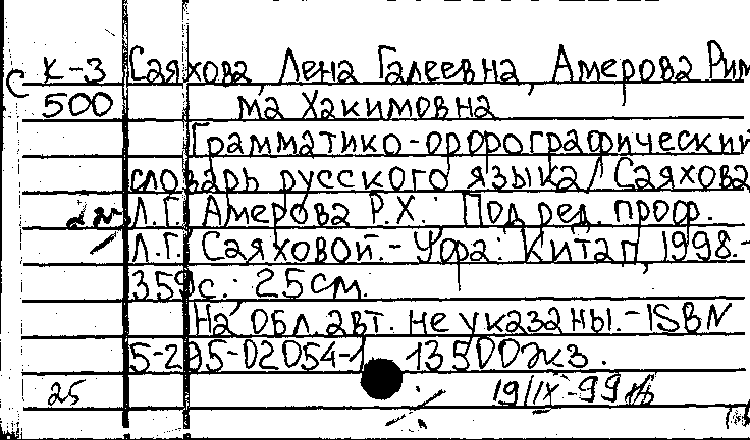 С К-3 Саяхова, Лена Галеевна, Амерова Рим
500 ма Хакимовна
Грамматико-орфографический
словарь русского языка/ Саяхова
2 Л.Г., Амерова Р.Х.: Под ред. проф.
Л.Г. Саяховой.- Уфа: Китап, 1998.-
359с.; 25см.
На обл. авт. не указаны.- ISBN
5-295-02054-1 13500экз.
25 19/IX-99